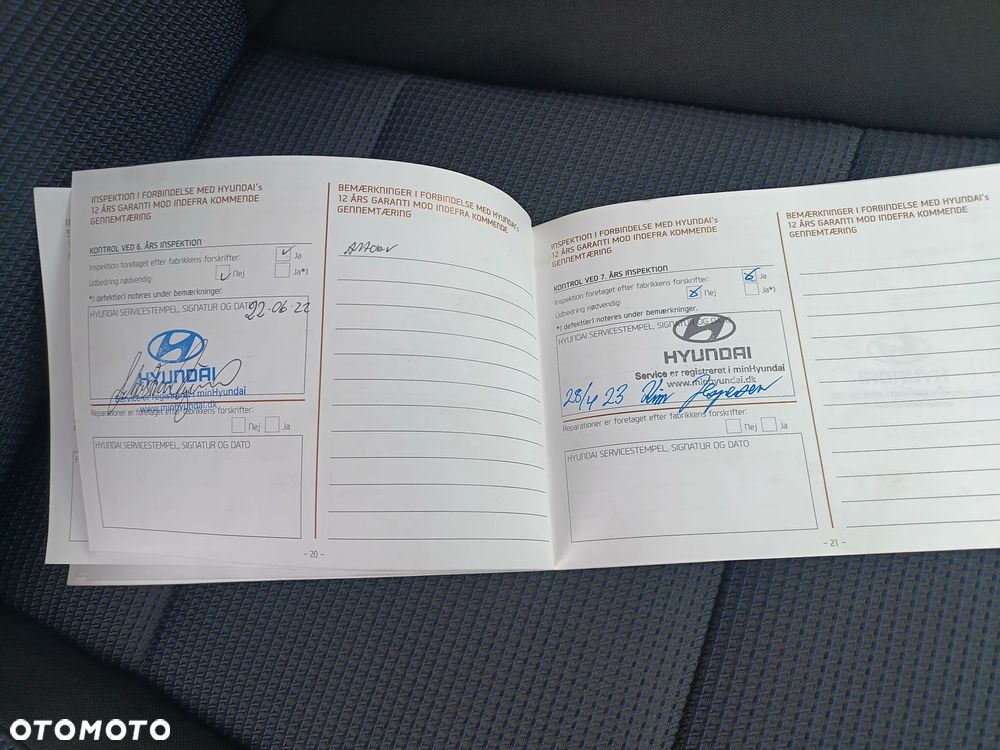 INSPEKTION I FORBINDELSE MED HYUNDAI's
12 ÅRS GARANTI MOD INDEFRA KOMMENDE
GENNEMTÆRING
KONTROL VED 6. ÅRS INSPEKTION
Inspektion foretaget efter fabrikkens forskrifter: Ja
Udbedring nødvendig: Nej Ja*)
*) defekt(er) noteres under bemærkninger.
HYUNDAI SERVICESTEMPEL, SIGNATUR OG DATO
22-06-22
HYUNDAI
Service er registreret i minHyundai
www.minhyundai.dk
Reparationer er foretaget efter fabrikkens forskrifter:
Nej Ja
HYUNDAI SERVICESTEMPEL, SIGNATUR OG DATO
BEMÆRKNINGER I FORBINDELSE MED HYUNDAI's
12 ÅRS GARANTI MOD INDEFRA KOMMENDE
GENNEMTÆRING
- 20 -
INSPEKTION I FORBINDELSE MED HYUNDAI's
12 ÅRS GARANTI MOD INDEFRA KOMMENDE
GENNEMTÆRING
KONTROL VED 7. ÅRS INSPEKTION
Inspektion foretaget efter fabrikkens forskrifter: Ja
Udbedring nødvendig: Nej Ja*)
*) defekt(er) noteres under bemærkninger.
HYUNDAI SERVICESTEMPEL, SIGNATUR OG DATO
HYUNDAI
Service er registreret i minHyundai
www.minhyundai.dk
28/4 23 Kim Jespersen
Reparationer er foretaget efter fabrikkens forskrifter:
Nej Ja
HYUNDAI SERVICESTEMPEL, SIGNATUR OG DATO
BEMÆRKNINGER I FORBINDELSE MED HYUNDAI's
12 ÅRS GARANTI MOD INDEFRA KOMMENDE
GENNEMTÆRING
- 21 -
OTOMOTO